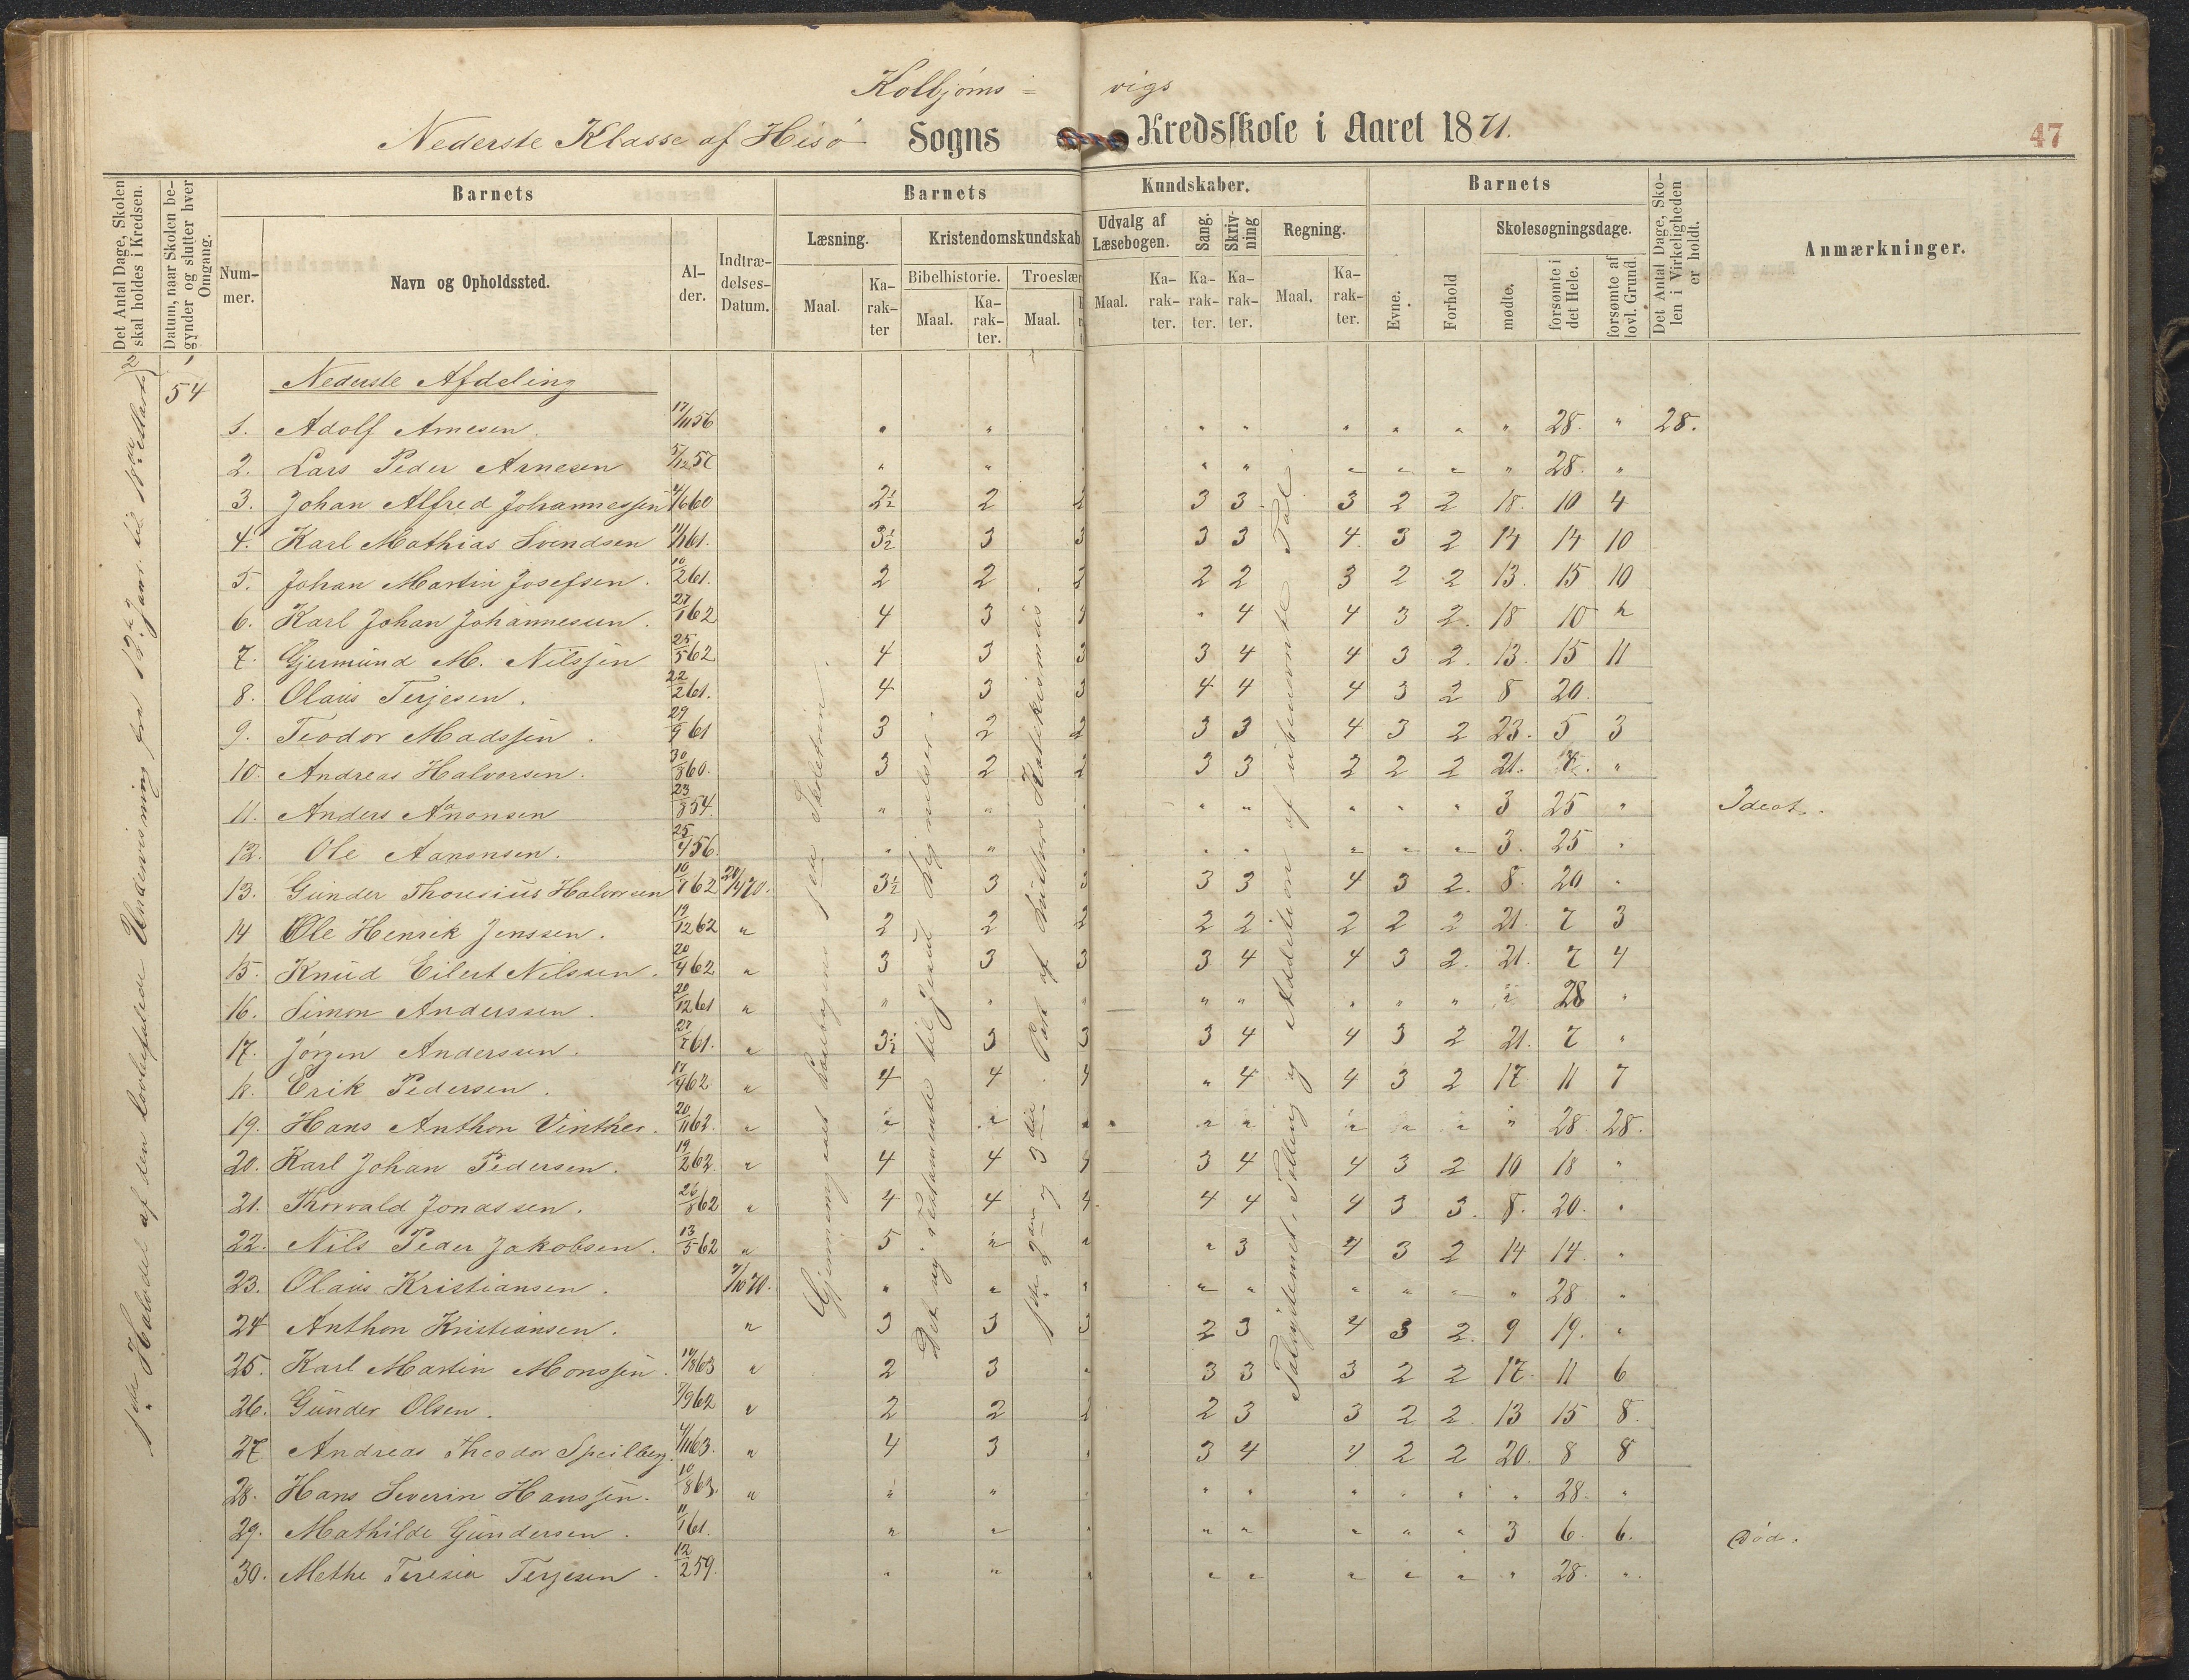 Kolbjørns = vigs
Nederste Klasse af Hisø Sogns Kredsskole i Aaret 1871.
47
Det Antal Dage, Skolen skal holdes i Kredsen.
Datum, naar Skolen begynder og slutter hver Omgang.
Barnets
Barnets
Kundskaber.
Barnets
Det Antal Dage, Skolen i Virkeligheden er holdt.
Anmærkninger.
Nummer.
Navn og Opholdssted.
Alder.
Indtrædelses-Datum.
Læsning.
Kristendomskundskab
Udvalg af Læsebogen.
Sang.
Skrivning
Regning.
Evne.
Forhold
Skolesøgningsdage.
Bibelhistorie.
Troeslær
Maal.
Karakter
Maal.
Karakter.
Maal.
Maal.
Karakter.
Karakter.
Karakter.
Maal.
Karakter.
mødte.
forsømte i det Hele.
forsømte af lovl. Grund.
1ste Halvdel af den lovbefalede Undervisning fra 12te Janr. til 18de Marts
54
Nederste Afdeling
1. Adolf Arnesen. 17/11 56 " " " " " " " " 28. " 28.
2. Lars Peder Arnesen 5/12 57 " " " " " " " " 28. "
3. Johan Alfred Johannessen 4/6 60 2½ 2 2 3 3 3 2 2 18. 10 4
4. Karl Mathias Svendsen 11/1 61. 3½ 3 3 3 3 4. 3 2 14 14 10
5. Johan Martin Josefsen. 10/2 61. 2 2 2 2 2 3 2 2 13. 15 10
6. Karl Johan Johannesen. 27/1 62 4 3 3 " 4 4 3 2. 18 10 "
7. Gjermund M. Nilssen 25/5 62 4 3 3 3 4 4 3 2. 13. 15 11
8. Olaus Terjesen. 22/2 61. 4 3 3 4 4 4 3 2 8 20.
9. Teodor Madssen. 29/9 61 3 2 2 3 3 4 3 2 23. 5 3
10. Andreas Halvorsen. 30/8 60. 3 2 2 3 3 2 2 2 21. 7. "
11. Anders Aanonsen 23/8 54. " " " " " " " 3 25 " Ideot.
12. Ole Aanonsen. 25/4 56. " " " " " " " 3. 25 "
13. Gunder Thoresius Halvorsen 10/7 62 20/4 70. 3½ 3 3 3 3 4 3 2. 8. 20 "
14 Ole Henrik Jenssen. 19/12 62 " 2 2 2 2 2 2 2 2 21. 7 3
15. Knud Eilert Nilssen. 20/4 62 " 3 3 3 3 4 4 3 2. 21. 7 4
16. Simon Anderssen. 20/12 61 " " " " " " " " " " 28 "
17. Jørgen Anderssen. 27/7 61. " 3½ 3 3 3 4 4 3 2 21. 7 "
18. Erik Pedersen. 17/4 62. " 4 4 4 " 4 4 3 2 17 11 7
19. Hans Anthon Vinther. 20/11 62. " " " " " " " " " " 28. 28.
20. Karl Johan Pedersen. 19/2 62. " 4 4 4 3 4 4 3 2 10 18 "
21. Thorvald Jonassen. 26/8 62 " 4 4 4. 4 4 4 3 3. 8. 20. "
22. Nils Peder Jakobsen. 13/5 62 " 5 " " " 3 4 3 2 14 14. "
23. Olaus Kristiansen. 7/10 70. " " " " " " " " " 28 "
24 Anthon Kristiansen. " 3 3 3 2 3 4 3 2. 9 19. "
25. Karl Martin Monssen. 14/8 63 " 2 3 " 3 3 3 2 2 17. 11 6
26. Gunder Olsen. 7/9 62 " 2 2 2 2 3 3 2 2. 13 15 8.
27 Andreas Theodor Speilberg. 4/11 63. " 4 3 " 3 4 4 2 2 20. 8 8
28. Hans Severin Hanssen. 10/8 63. " " " " " " " " " 28. "
29. Mathilde Gundersen. 11/1 61. " " " " " " " " 3 6. 6. Død.
30. Methe Teresia Terjesen. 12/2 59. " " " " " " " " 28. "
Gjennemgaaet Læsebogens
Det ny Testamente til Jesu Lignelser.
1ste, 2den og 3die Part af Luthers Katekismus.
Talsystemet, Tælling og Addition af ubenævnte Tal.